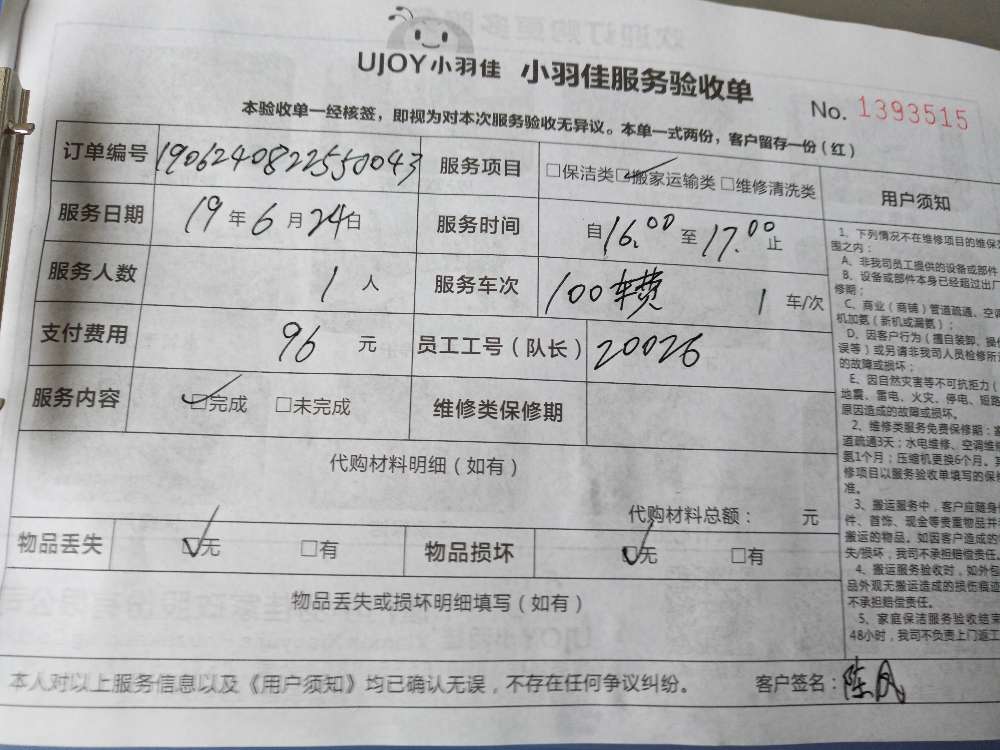 UJOY小羽佳 小羽佳服务验收单
No. 1393515
本验收单一经核签，即视为对本次服务验收无异议。本单一式两份，客户留存一份（红）
订单编号 1906240822550043 服务项目 □保洁类□搬家运输类 □维修清洗类
服务日期 19 年 6 月 24 日 服务时间 自 16.00 至 17.00 止
服务人数 1 人 服务车次 100车费 1 车/次
支付费用 96 元 员工工号（队长） 20026
服务内容 □完成 □未完成 维修类保修期
代购材料明细（如有）
代购材料总额： 元
物品丢失 □无 □有 物品损坏 □无 □有
物品丢失或损坏明细填写（如有）
本人对以上服务信息以及《用户须知》均已确认无误，不存在任何争议纠纷。 客户签名：陈
用户须知
1、下列情况不在维修项目的维保
围之内：
A、非我司员工提供的设备或部件
B、设备或部件本身已经超过出厂
修期；
C、商业（商铺）管道疏通、空调
机加氨（新机或漏氨）；
D、因客户行为（擅自装卸、操
误等）或另请非我司人员检修所
的故障或损坏；
E、因自然灾害等不可抗拒力（
地震、雷电、火灾、停电、短路
原因造成的故障或损坏。
2、维修类服务免费保修期：
道疏通3天；水电维修、空调维
氨1个月；压缩机更换6个月。
修项目以服务验收单填写的保
准。
3、搬运服务中，客户应随身
件、首饰、现金等贵重物品并
搬运的物品。如因客户造成的
失/损坏，我司不承担赔偿责任。
4、搬运服务验收时，如外包
品外观无搬运造成的损伤痕迹
不承担赔偿责任。
5、家庭保洁服务验收结束
48小时，我司不负责上门返工